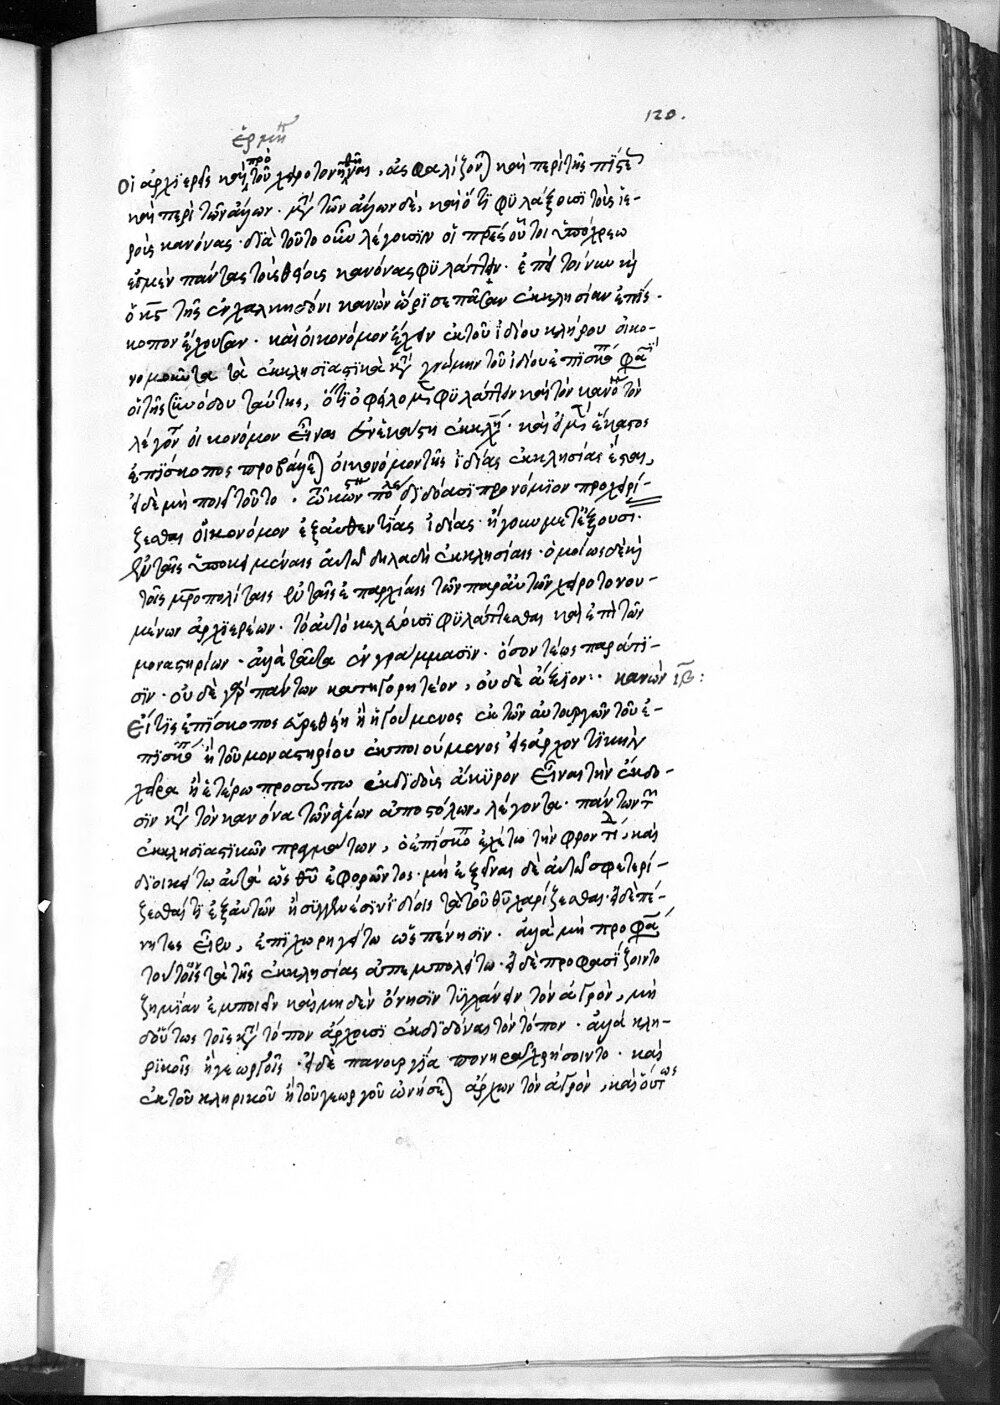 120.
ἑρμη
Οἱ ἀρχιερεῖς καὶ πρὸ τοῦ χειροτονηθῆναι, ἀσφαλίζονται καὶ περὶ τῆς πίστεως
καὶ περὶ τῶν ἄλλων. μετὰ τῶν ἄλλων δὲ, καὶ ὅτι φυλάξουσι τοὺς ἱε-
ροὺς κανόνας. διὰ τοῦτο οὖν λέγουσιν οἱ πατέρες οὗτοι ὑπόχρεω
ἐσμὲν πάντας τοὺς θείους κανόνας φυλάττειν. ἐπεὶ τοίνυν καὶ
ὁ κς τῆς ἐν χαλκηδόνι κανὼν ὥρισε πᾶσαν ἐκκλησίαν ἐπίσ-
κοπον ἔχουσαν. καὶ οἰκονόμον ἔχειν ἐκ τοῦ ἰδίου κλήρου οἰκο-
νομοῦντα τὰ ἐκκλησιαστικὰ κατὰ γνώμην τοῦ ἰδίου ἐπισκόπου φασὶ
οἱ τῆς συνόδου ταύτης, ὅτι ὀφείλομεν φυλάττειν καὶ τὸν κανόνα τὸν
λέγοντα οἰκονόμον εἶναι ἐν ἑκάστῃ ἐκκλησίᾳ. καὶ εἰ μὲν ἕκαστος
ἐπίσκοπος προβάλληται οἰκονόμον τῆς ἰδίας ἐκκλησίας ἔσται,
εἰ δὲ μὴ ποιεῖ τοῦτο. τῷ κωνσταντινουπόλεως δίδοασι προνόμιον προχειρί-
ζεσθαι οἰκονόμον ἐξ αὐθεντίας ἰδίας. ἤγουν μετ' ἐξουσί.
ἐν ταῖς ὑποκειμέναις αὐτῷ δηλαδὴ ἐκκλησίαις. ὁμοίως δὲ καὶ
τοῖς μητροπολίταις ἐν ταῖς ἐπαρχίαις τῶν παρ' αὐτῶν χειροτονου-
μένων ἀρχιερέων. τὸ αὐτὸ κελεύουσι φυλάττεσθαι καὶ ἐπὶ τῶν
μοναστηρίων. ἀλλὰ ταῦτα ἐν γράμμασιν. ὅσον τέως παρ' αὐτοῖ-
σιν. οὐδὲ γὰρ πάντων κατηγορητέον, οὐδὲ ἄξιον:· κανὼν ιβ:
Εἴ τις ἐπίσκοπος εὑρεθείη ἢ ἡγούμενος ἐκ τῶν αὐτουργιῶν τοῦ ἐ-
πισκοπείου ἢ τοῦ μοναστηρίου ἐκποιούμενος εἰς ἀρχοντικὴν
χεῖρα ἢ ἑτέρῳ προσώπῳ ἐκδιδοὺς ἄκυρον εἶναι τὴν ἔκδο-
σιν κατὰ τὸν κανόνα τῶν ἁγίων ἀποστόλων, λέγοντα. πάντων τῶν
ἐκκλησιαστικῶν πραγμάτων, ὁ ἐπίσκοπος ἐχέτω τὴν φροντίδα, καὶ
διοικείτω αὐτὰ ὡς θεοῦ ἐφορῶντος. μὴ ἐξεῖναι δὲ αὐτῷ σφετερί-
ζεσθαί τι ἐξ αὐτῶν ἢ συγγενέσιν ἰδίοις τὰ τοῦ θεοῦ χαρίζεσθαι. εἰ δὲ πέ-
νητες εἶεν, ἐπιχορηγείτω ὡς πένησιν. ἀλλὰ μὴ προφάσει
τούτοις τὰ τῆς ἐκκλησίας ἀπεμπολείτω. εἰ δὲ προφασίζοιντο
ζημίαν ἐμποιεῖν καὶ μηδὲν ὄνησιν τυγχάνειν τὸν ἀγρὸν, μὴ
δ' οὕτως τοῖς κατὰ τόπον ἄρχουσι ἐκδιδόναι τὸν τόπον. ἀλλὰ κλη-
ρικοῖς ἢ γεωργοῖς. εἰ δὲ πανουργίᾳ πονηρᾷ χρήσοιντο. καὶ
ἐκ τοῦ κληρικοῦ ἢ τοῦ γεωργοῦ ὠνήσεται ἄρχων τὸν ἀγρὸν, καὶ οὕτως